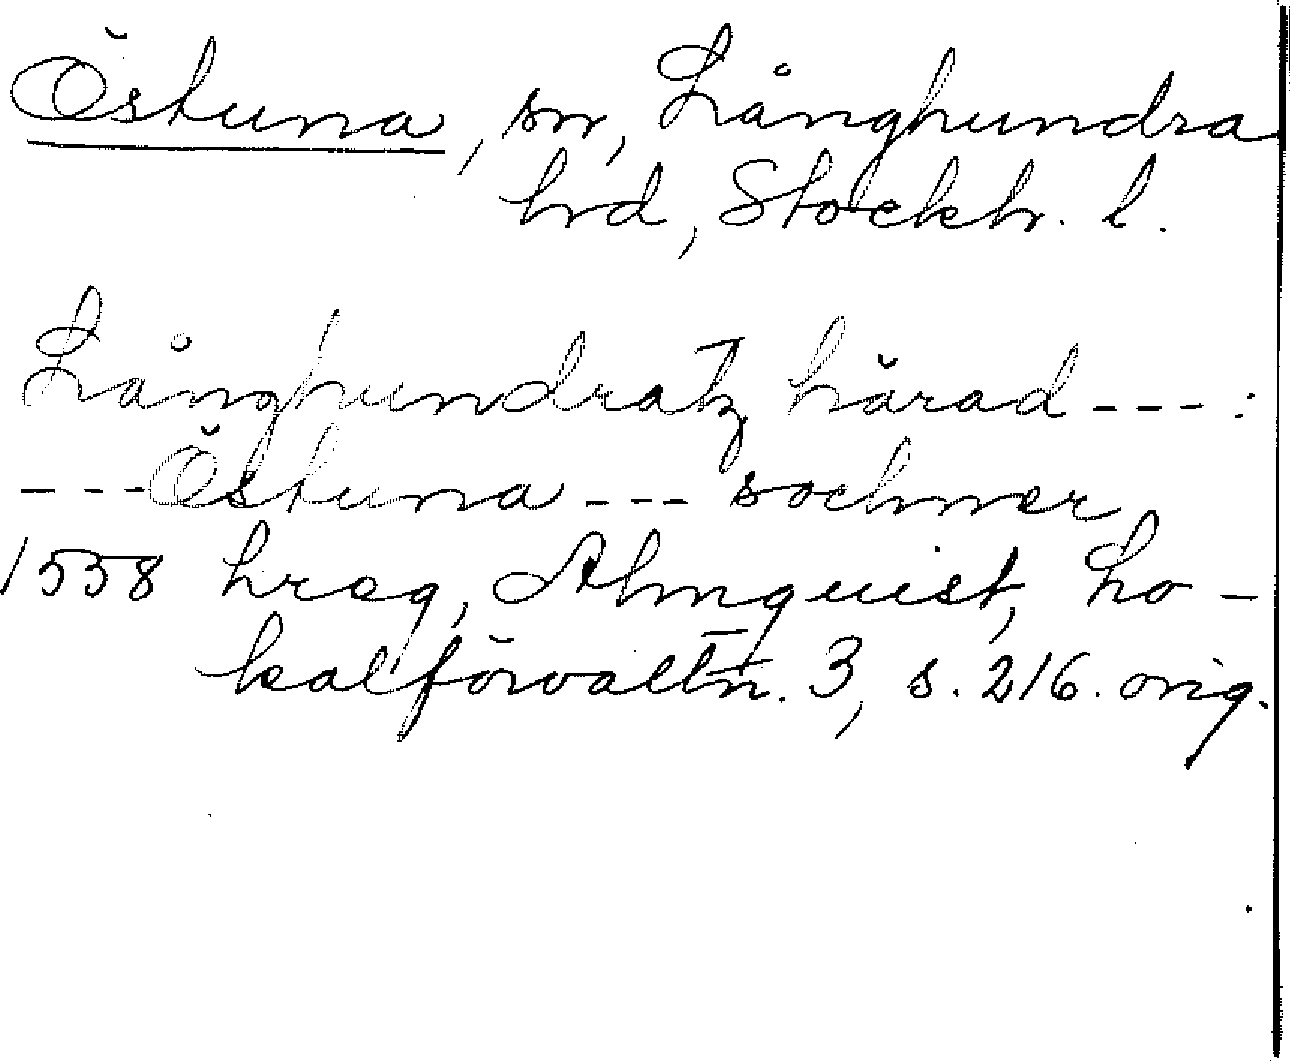 Östuna, sn, Långhundra
hrd, Stockh. l.
Långhundratz härad ---:
--- Östuna --- sochner
1558 hreg, Almquist, Lo-
kalförvaltn. 3, s. 216. orig.